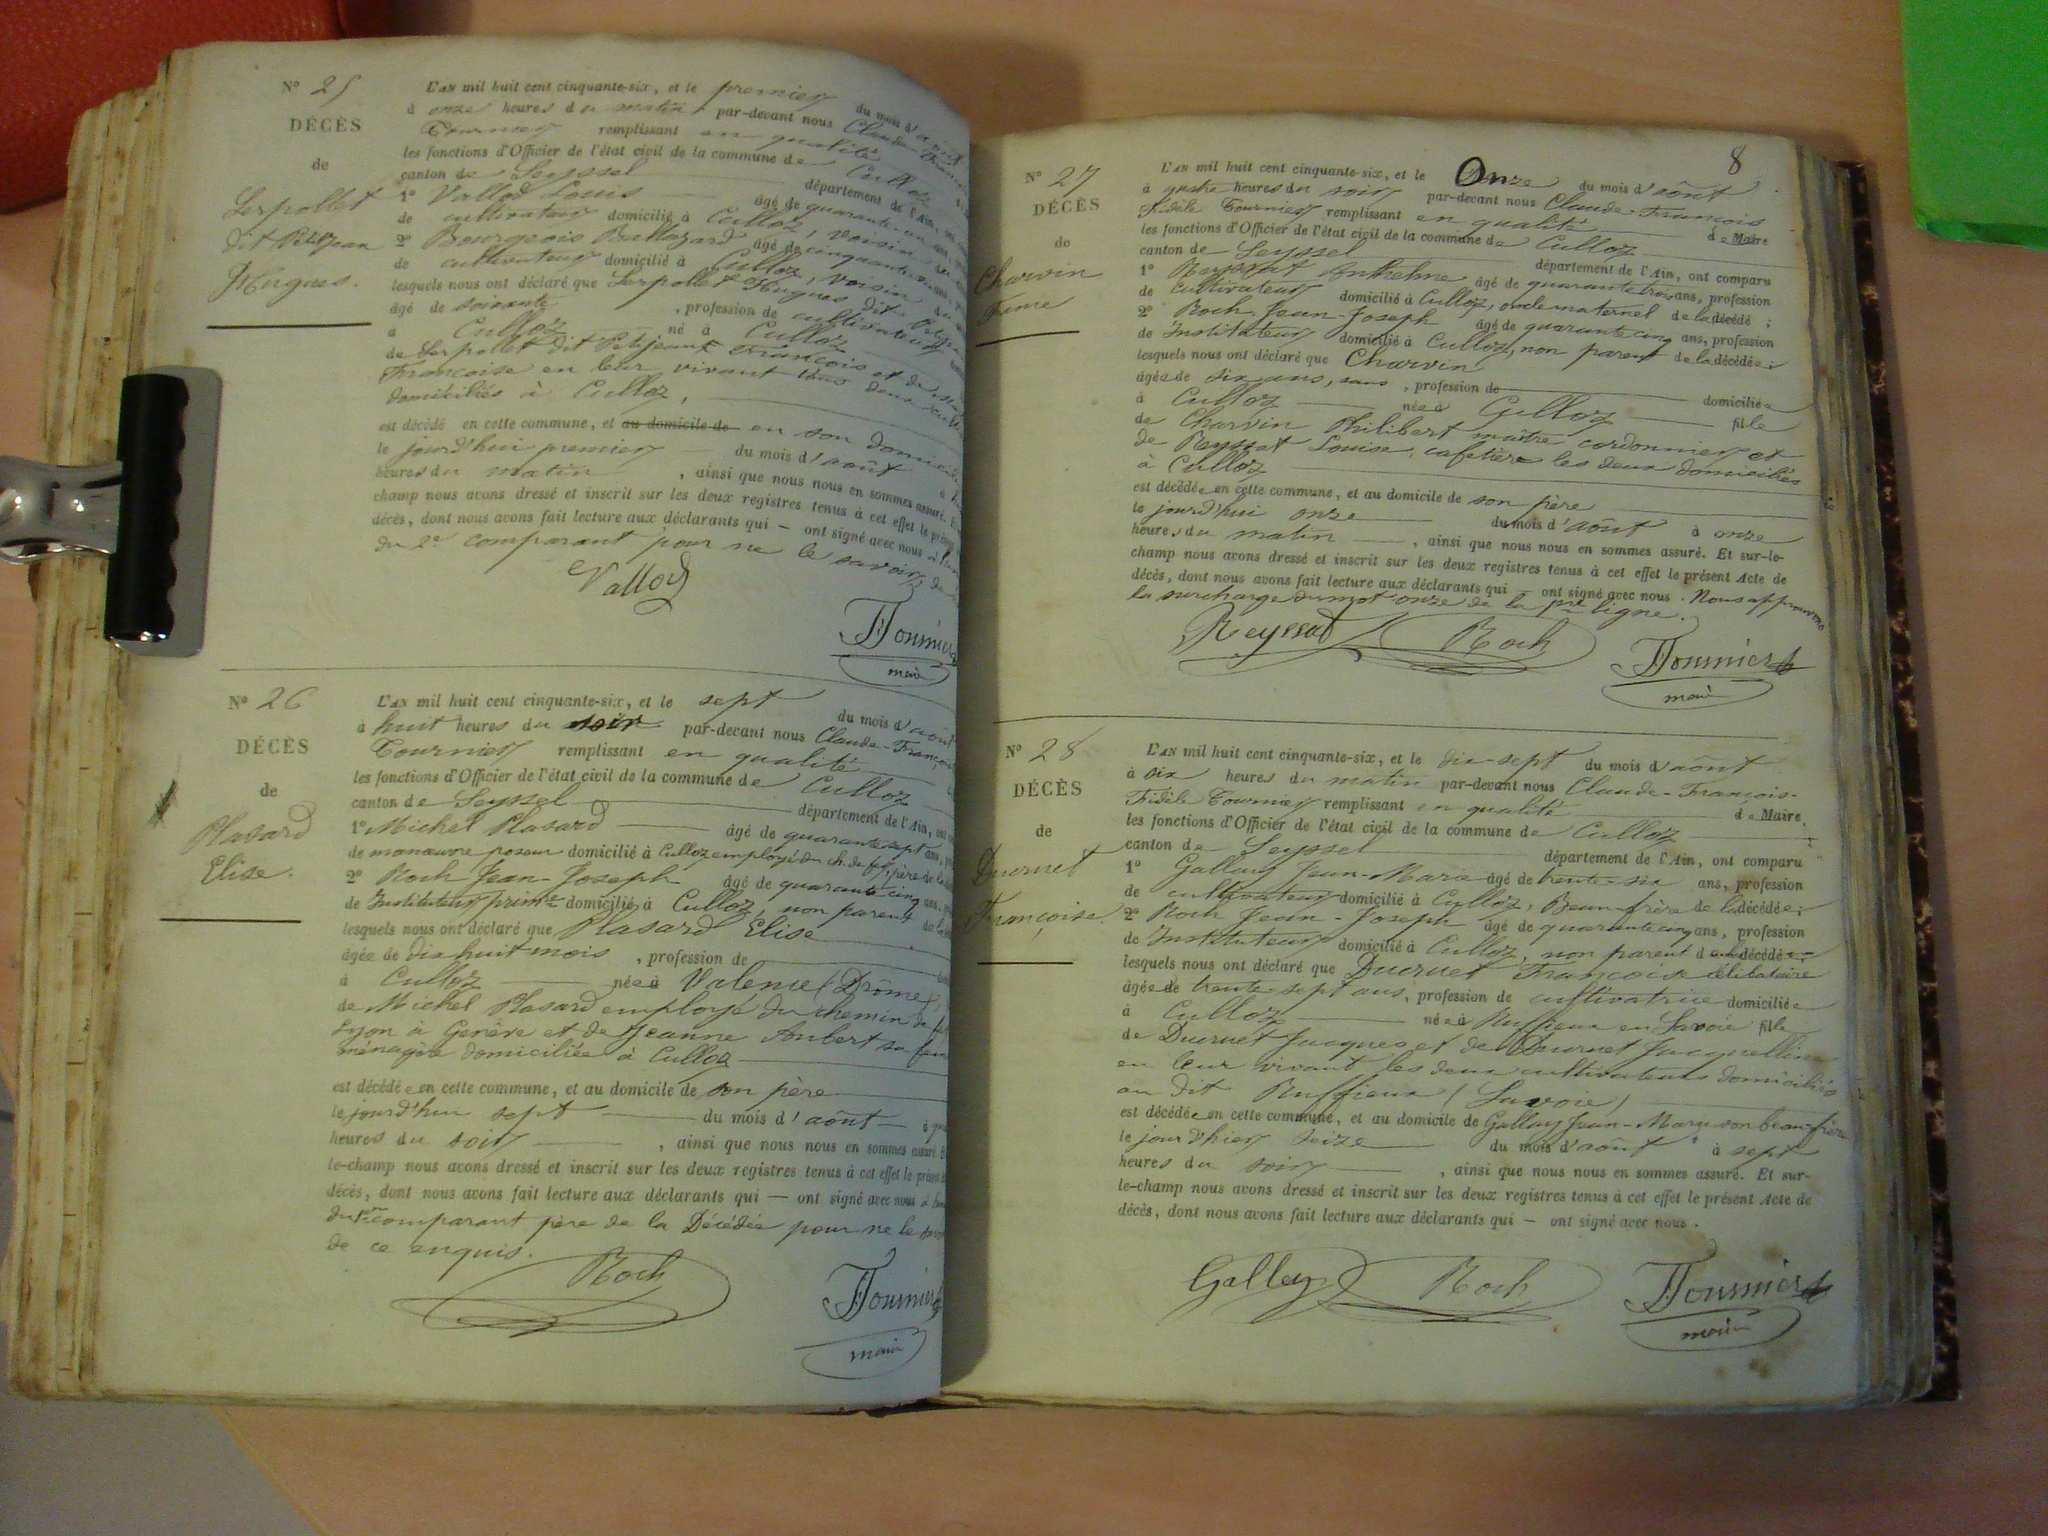 N° 25
DÉCÈS
de
Serpollet
dit Petitjean
Hugues.
L'AN mil huit cent cinquante-six, et le premier du mois d'août
à onze heures du matin par-devant nous Claude-François
Tournier remplissant en qualité
les fonctions d'Officier de l'état civil de la commune de Culloz
canton de Seyssel département de l'Ain,
1° Vallod Louis âgé de quarante-un ans,
de cultivateur domicilié à Culloz, voisin
2° Bourgeois Baltazard âgé de cinquante
de cultivateur domicilié à Culloz, voisin
lesquels nous ont déclaré que Serpollet Hugues dit
âgé de soixante , profession de cultivateur
à Culloz né à Culloz
de Serpollet dit Petijean François et de
Françoise en leur vivant tous deux
domiciliés à Culloz,
est décédé en cette commune, et au domicile de en son domicile
le jourd'hui premier du mois d'août à
heures du matin , ainsi que nous nous en sommes assuré.
champ nous avons dressé et inscrit sur les deux registres tenus à cet effet le présent
décès, dont nous avons fait lecture aux déclarants qui — ont signé avec nous
du 2e comparant pour ne le savoir de
Vallod
Tournier
maire
N° 26
DÉCÈS
de
Plasard
Elise.
L'AN mil huit cent cinquante-six, et le sept du mois d'août
à huit heures du soir par-devant nous Claude-François
Tournier remplissant en qualité
les fonctions d'Officier de l'état civil de la commune de Culloz
canton de Seyssel département de l'Ain,
1° Michel Plasard âgé de quarante sept ans,
de manœuvre poseur domicilié à Culloz employé du ch. de fer, père de la
2° Roch Jean-Joseph âgé de quarante cinq ans,
de Instituteur prim.re domicilié à Culloz, non parent de la
lesquels nous ont déclaré que Plasard Elise
âgée de dix huit mois , profession de
à Culloz née à Valence (Drôme)
de Michel Plasard employé du chemin de fer
Lyon à Genève et de Jeanne Joubert sa
ménagère domiciliée à Culloz
est décédée en cette commune, et au domicile de son père
le jourd'hui sept du mois d'août à
heures du soir , ainsi que nous nous en sommes assuré.
le-champ nous avons dressé et inscrit sur les deux registres tenus à cet effet le présent
décès, dont nous avons fait lecture aux déclarants qui — ont signé avec nous à
du 1er comparant père de la Décédée pour ne le
de ce enquis.
Roch
Tournier
maire
8
N° 27
DÉCÈS
de
Charvin
L'AN mil huit cent cinquante-six, et le Onze du mois d'août
à quatre heures du soir par-devant nous Claude-François
Fidèle Tournier remplissant en qualité de Maire
les fonctions d'Officier de l'état civil de la commune de Culloz
canton de Seyssel département de l'Ain, ont comparu
1° Reyssat Anthelme âgé de quarante trois ans, profession
de cultivateur domicilié à Culloz, oncle maternel de la décédé ;
2° Roch Jean-Joseph âgé de quarante cinq ans, profession
de Instituteur domicilié à Culloz, non parent de la décédée ;
lesquels nous ont déclaré que Charvin
âgée de six ans, sans , profession de domiciliée
à Culloz née à Culloz fille
de Charvin Philibert maître cordonnier et
de Reyssat Louise cafetière les deux domiciliés
à Culloz
est décédée en cette commune, et au domicile de son père
le jourd'hui onze du mois d'août à onze
heures du matin , ainsi que nous nous en sommes assuré. Et sur-le-
champ nous avons dressé et inscrit sur les deux registres tenus à cet effet le présent Acte de
décès, dont nous avons fait lecture aux déclarants qui — ont signé avec nous . Nous approuvons
la surcharge du mot onze de la pre ligne.
Reyssat
Roch
Tournier
maire
N° 28
DÉCÈS
de
Ducruet
Françoise.
L'AN mil huit cent cinquante-six, et le dix-sept du mois d'août
à six heures du matin par-devant nous Claude-François-
Fidèle Tournier remplissant en qualité de Maire
les fonctions d'Officier de l'état civil de la commune de Culloz
canton de Seyssel département de l'Ain, ont comparu
1° Gallay Jean-Marie âgé de trente-six ans, profession
de cultivateur domicilié à Culloz, Beau-frère de la décédée ;
2° Roch Jean-Joseph âgé de quarante cinq ans, profession
de Instituteur domicilié à Culloz, non parent de la décédée ;
lesquels nous ont déclaré que Ducruet Françoise célibataire
âgée de trente-sept ans, profession de cultivatrice domiciliée
à Culloz née à Ruffieux en Savoie fille
de Ducruet Jacques et de Ducruet Jacquelline
en leur vivant les deux cultivateurs domiciliés
au dit Ruffieux (Savoie)
est décédée en cette commune, et au domicile de Gallay Jean-Marie son beau-frère
le jour d'hier seize du mois d'août à sept
heures du soir , ainsi que nous nous en sommes assuré. Et sur-
le-champ nous avons dressé et inscrit sur les deux registres tenus à cet effet le présent Acte de
décès, dont nous avons fait lecture aux déclarants qui — ont signé avec nous .
Gallay
Roch
Tournier
maire